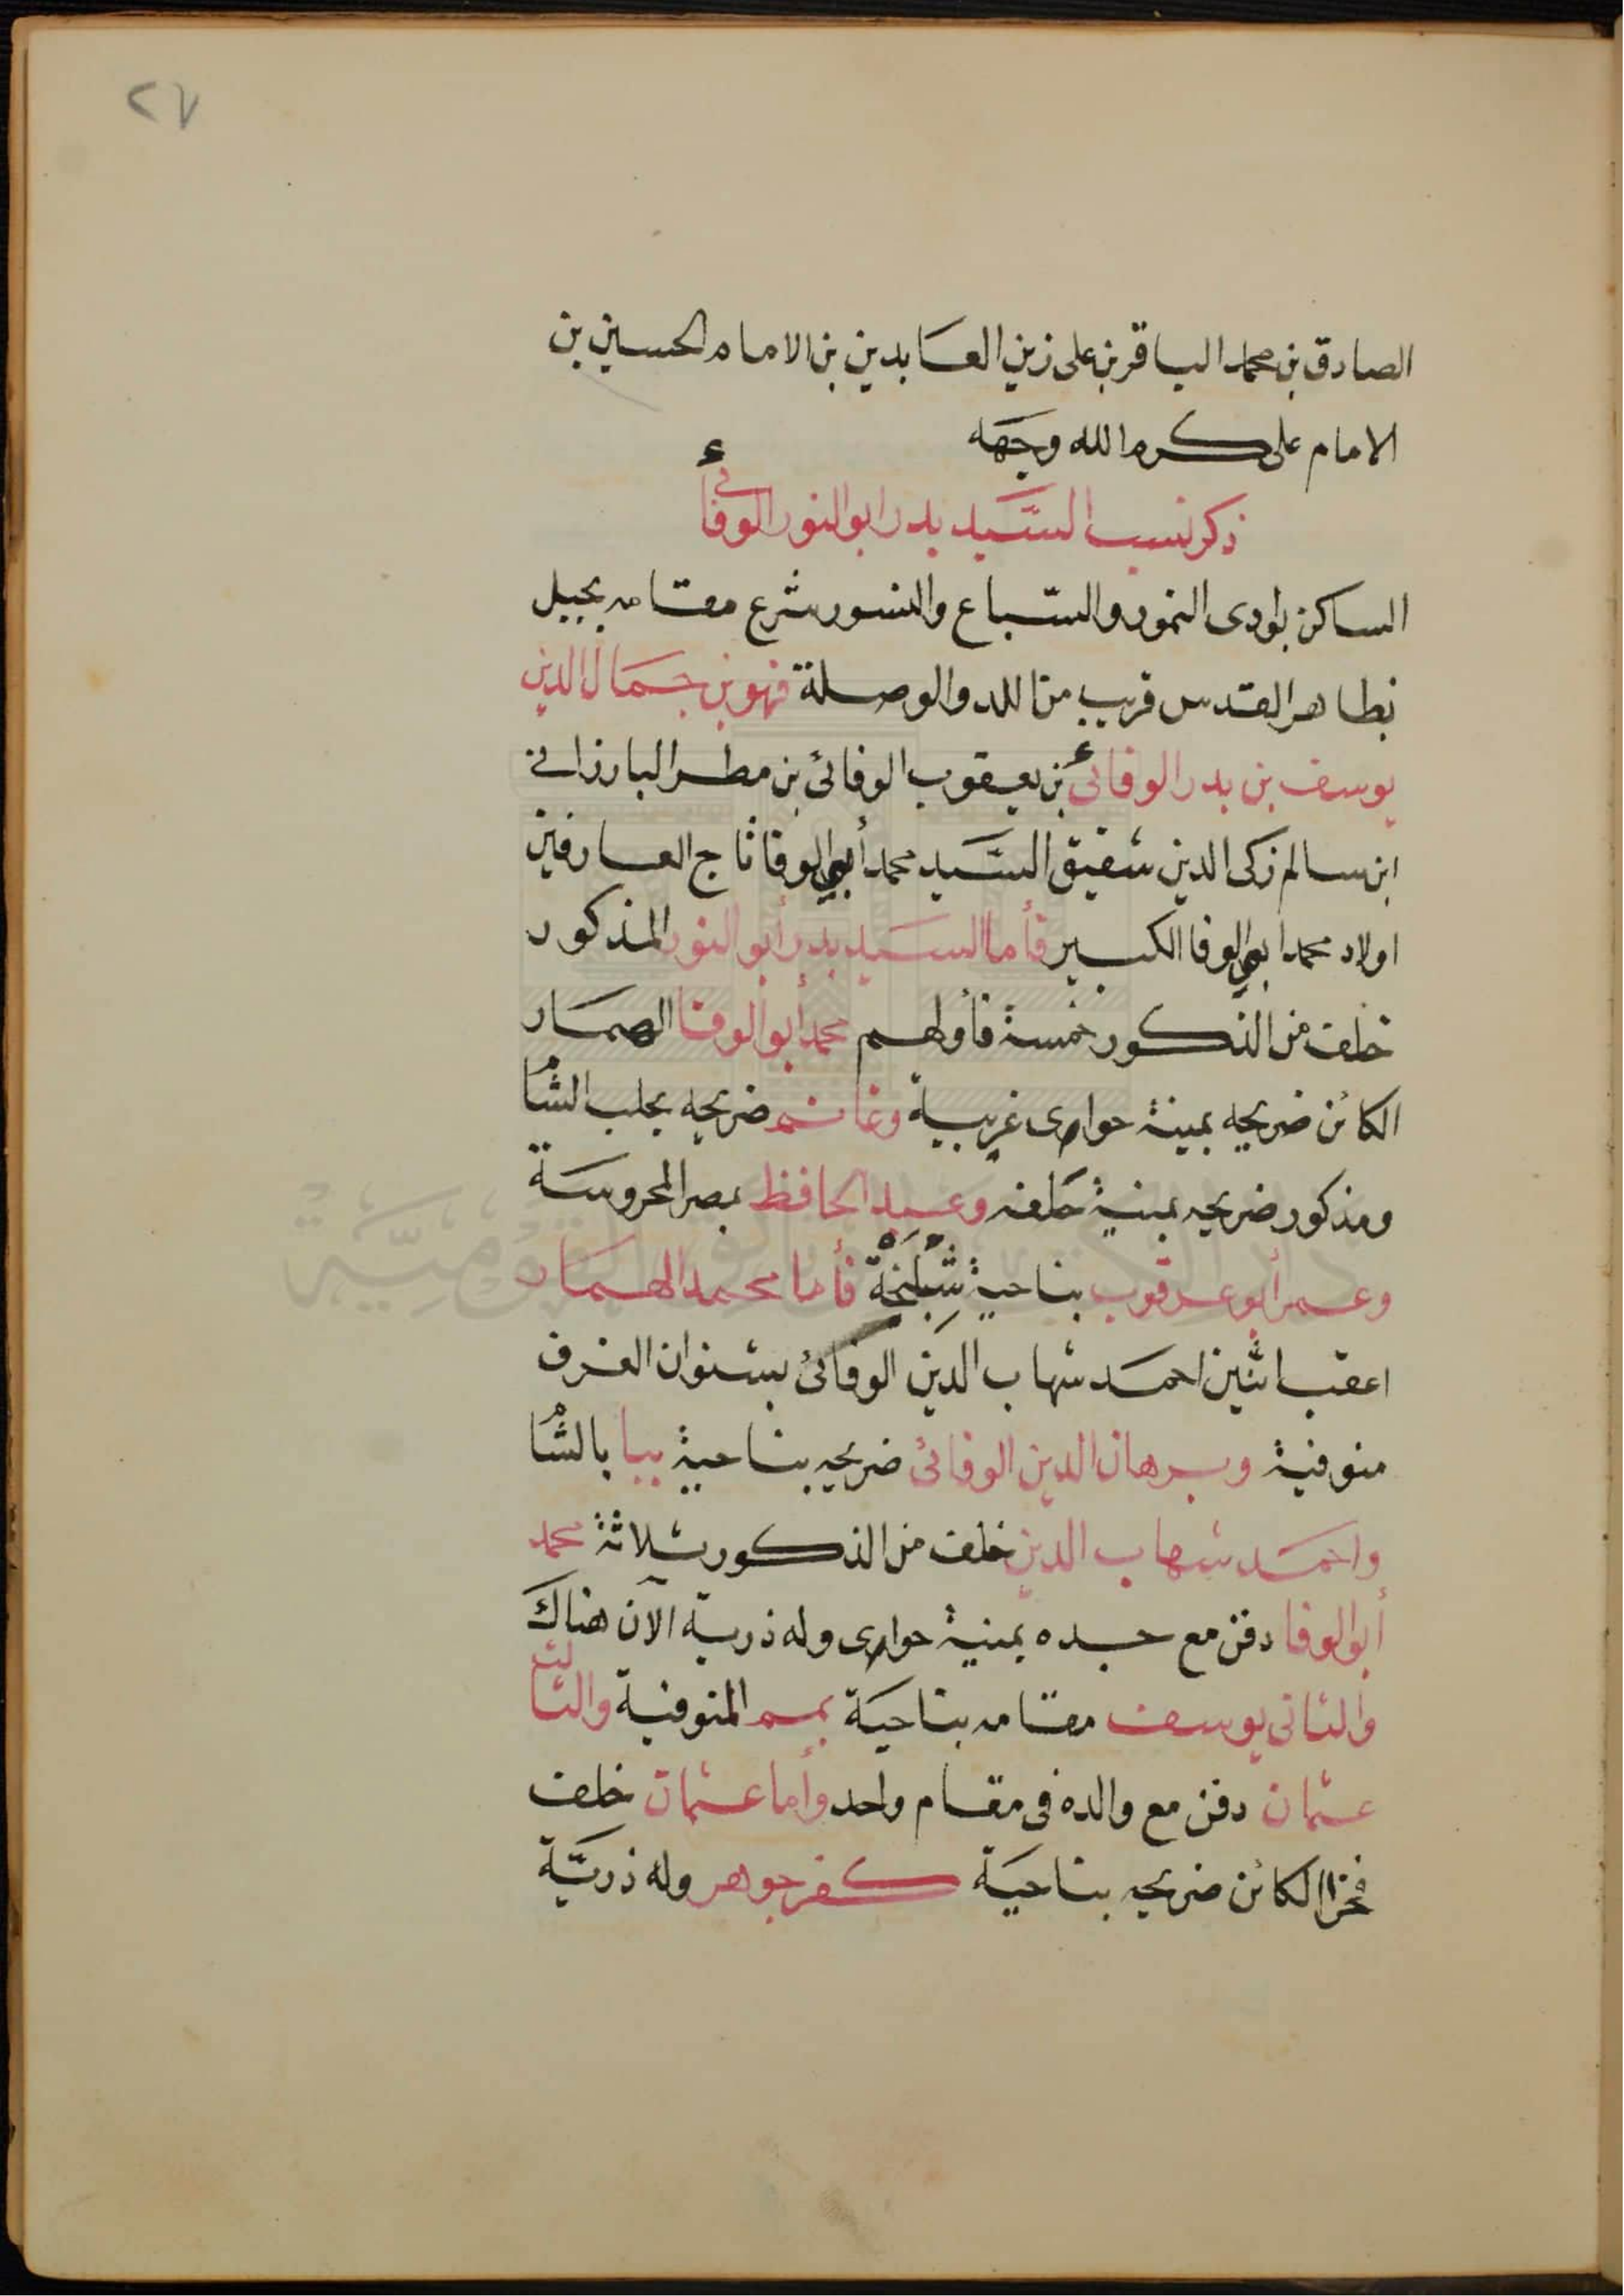 ٢٧
الصادق بن محمد الباقر بن على زين العابدين بن الامام الحسين بن
الامام على كرم الله وجهه
ذكر نسب السيد بدر ابو النور الوفائي
الساكن بوادى النمور والسباع والنسور شرع مقامه بجبل
بظاهر القدس قريب من اللد والوصلة فهو بن جمال الدين
يوسف بن بدر الوفائي بن يعقوب الوفائى بن مطر البارزاني
ابن سالم زكى الدين شقيق السيد محمد أبي الوفا تاج العارفين
اولاد محمد ابي الوفا الكبير فأما السيد بدر أبو النور المذكور
خلف من الذكور خمسة فأولهم محمد أبو الوفا الهمار
الكائن ضريحه بمنية حوارى غربية وغانم ضريحه بحلب الشام
ومذكور ضريحه بمنية خلفه وعبد الحافظ بمصر المحروسة
وعمر أبو عرقوب بناحية شِبْلَنْجَة فأما محمد الهمار
اعقب اثنين احمد شهاب الدين الوفائى بشنوان الغرف
منوفية وبرهان الدين الوفائى ضريحه بناحية ببا بالشام
واحمد شهاب الدين خلف من الذكور ثلاثة محمد
أبو الوفا دفن مع جده بمنية حوارى وله ذرية الآن هناك
والثانى يوسف مقامه بناحية بمم المنوفية والثالث
عثمان دفن مع والده فى مقام واحد وأما عثمان خلف
فخرا الكائن ضريحه بناحية كفر جوهر وله ذرية
دار الكتب والوثائق القومية